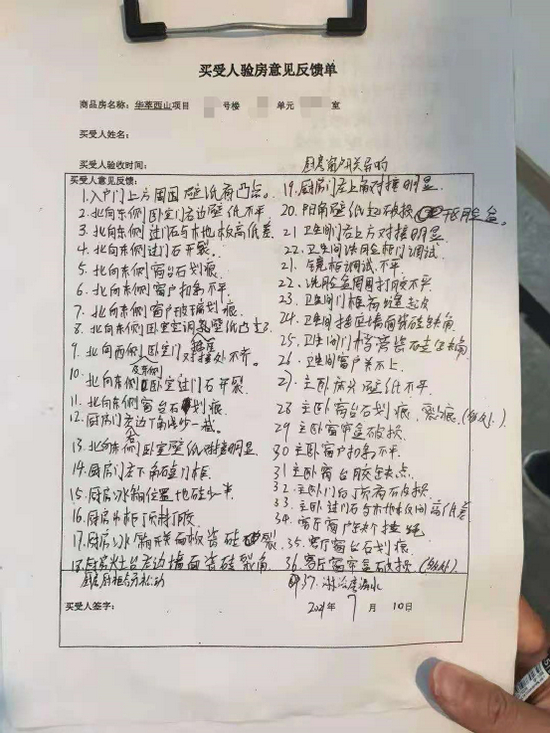 买受人验房意见反馈单
商品房名称：华萃西山项目 号楼 单元 室
买受人姓名：
买受人验收时间：
买受人意见反馈：
1.入户门上方周围壁纸有凸点。
2.北向东侧卧室门左边壁纸不平
3.北向东侧过门石与木地板高低差
4.北向东侧过门石开裂.
5.北向东侧窗台石划痕
6.北向东侧窗户扣条不平
7.北向东侧窗户玻璃划痕
8.北向东侧卧室空调 壁纸凸
9.北向西侧卧室门 对接处不齐.
10.北向东侧卧室过门石开裂
11.北向东侧窗台石划痕
12.厨房门左边下角 少一截
13.北向东侧卧室壁纸对接明显
14.厨房门右下角碰门框
15.厨房冰箱位置地砖少一半
16.厨房吊柜顶板打胶
17.厨房冰箱 面板瓷砖 裂
18.厨房灶台左边墙面瓷砖裂角
厨房 松动
厨房窗户开关异响
19.厨房门右上角对接明显
20.阳角壁纸起破损
21.卫生间右上方对接明显
22.卫生间洗脸柜门调试
21.镜柜调试.不平
22.洗脸盆周围打胶不平
23.卫生间门框有 起皮
24.卫生间 墙面瓷砖缺角
25.卫生间门 瓷砖缺角
26.卫生间窗户关不上
27.主卧床头壁纸不平
28.主卧窗台石划痕.裂痕
29.主卧窗帘盒破损
30.主卧窗户扣条不平
31.主卧窗台胶缺点
32.主卧门 顶有 破损
33.主卧过门石与木地板间高低差
34.客厅窗户缺个拉绳
35.客厅窗台石划痕
36.客厅窗帘盒破损
37. 漏水
买受人签字：
2021年 7 月 10日